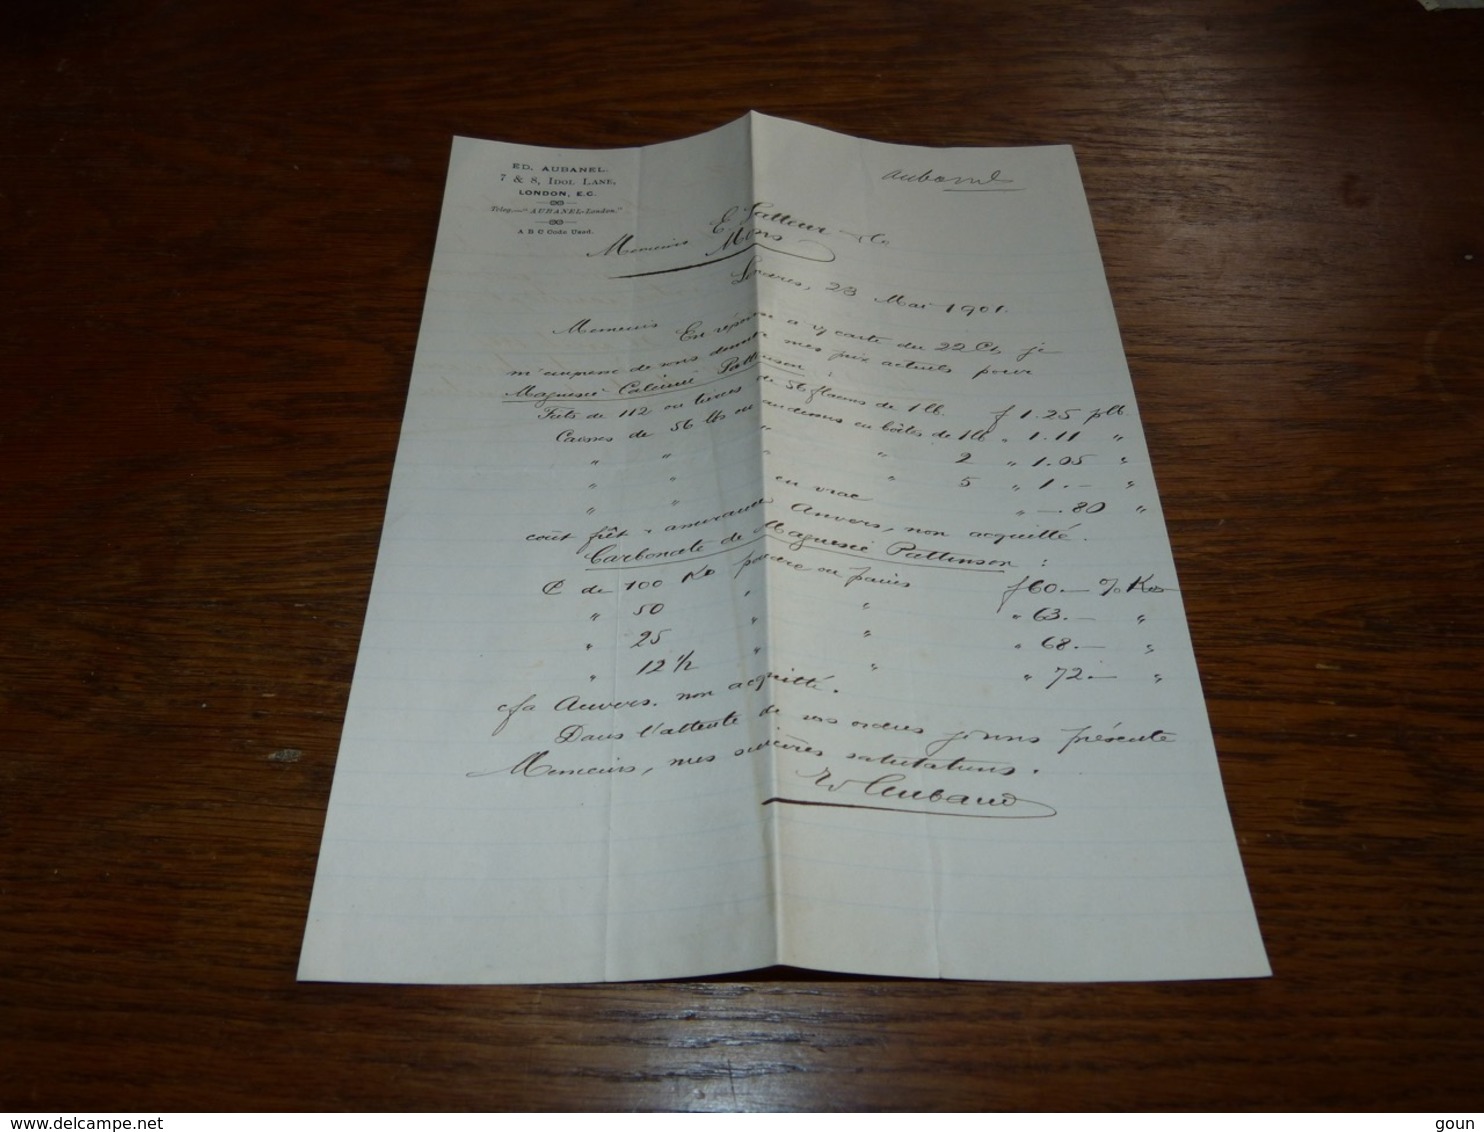 ED. AUBANEL.
7 & 8, IDOL LANE,
LONDON, E.C.
Teleg.—"AUBANEL-London."
A B C Code Used.
Aubanel
Messieurs E. & Co
Mons
Londres, 23 Mai 1901.
Messieurs
En réponse à v/ carte du 22 Ct, je
m'empresse de vous donner mes prix actuels pour
Magnesie Calcinée Pattinson :
Futs de 112 ou de 56 flacons de 1 lb. f 1.25 p lb.
Caisses de 56 lbs ou au dessus en boîtes de 1 lb " 1.11 "
" " " " 2 " 1.05 "
" " " 5 " 1.— "
" " en vrac " —.80 "
coût frêt & assurance Anvers, non acquitté.
Carbonate de Magnesie Pattinson :
C de 100 Ko poudre ou pains f 60.— % Kos
" 50 " " " 63.— "
" 25 " " " 68.— "
" 12 1/2 " " " 72.— "
cfa Anvers. non acquitté.
Dans l'attente de vos ordres je vous présente
Messieurs, mes sincères salutations.
Ed Aubanel
www.delcampe.net
goun